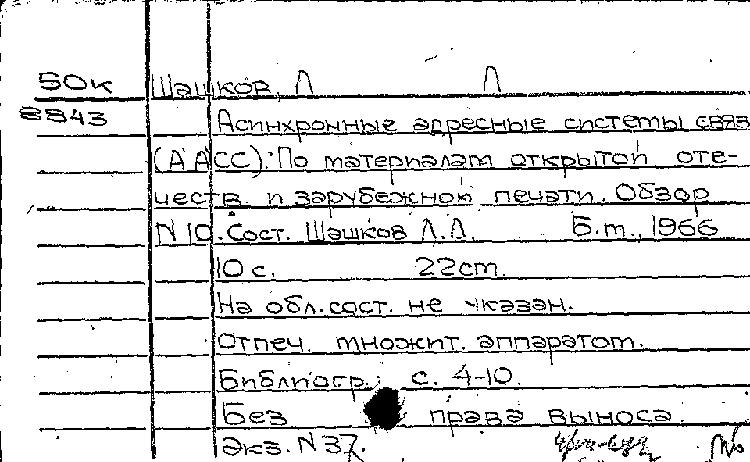 50к Шашков, Л Л
8843 Асинхронные адресные системы связ
(ААСС): По материалам открытой оте-
честв. и зарубежной печати. Обзор
N 10. Сост. Шашков Л.Л. Б.т., 1966
10 с. 22cm.
На обл. сост. не указан.
Отпеч. множит. аппаратом.
Библиогр.: с. 4-10.
Без права выноса.
Экз. N 37.